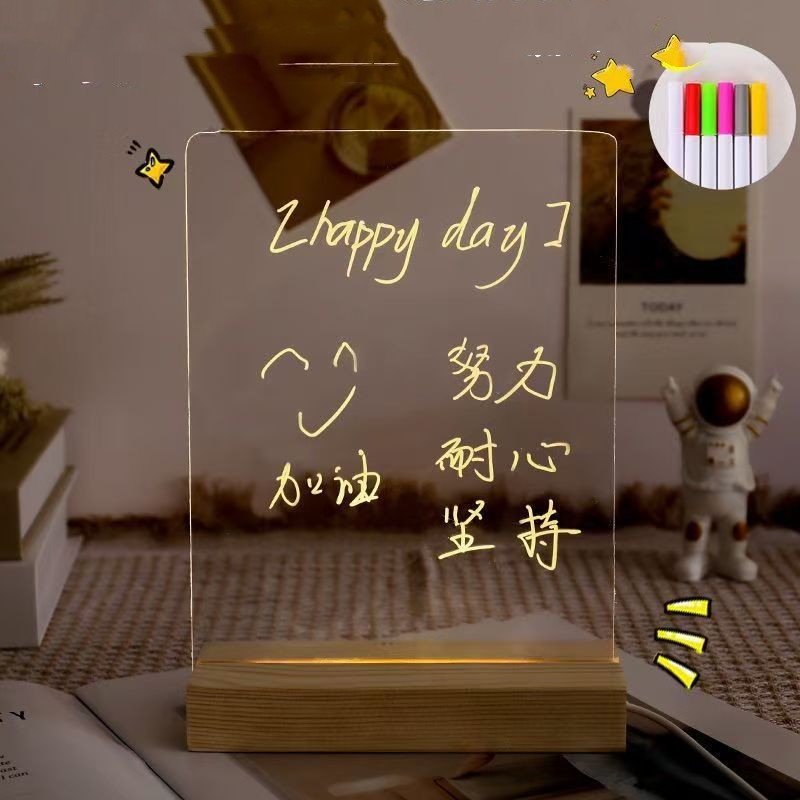 [happy day]
加油
努力
耐心
坚持
TODAY